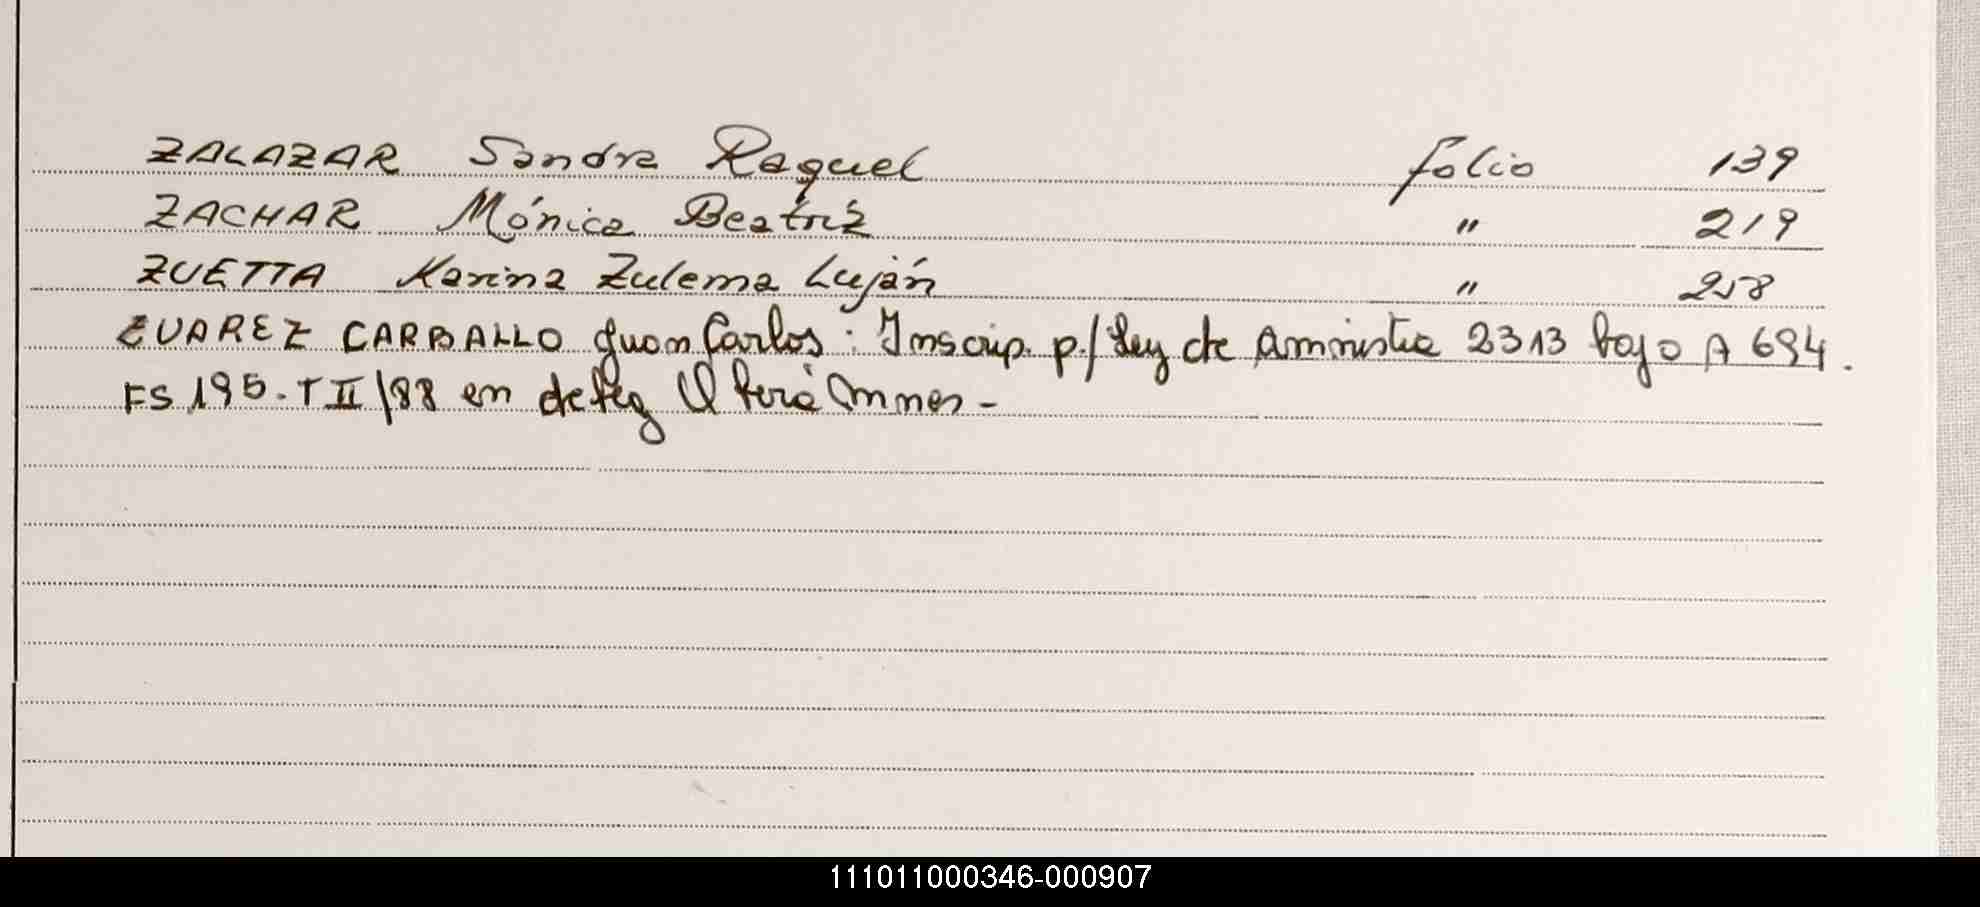 ZALAZAR Sandra Raquel folio 139
ZACHAR Mónica Beatriz " 219
ZUETTA Karina Zulema Luján " 258
ZUAREZ CARBALLO Juan Carlos : Inscrip. p/ Ley de Amnistia 2313 bajo A 694.
FS 195. T II/88 en deleg Wanda Mnes -
111011000346-000907